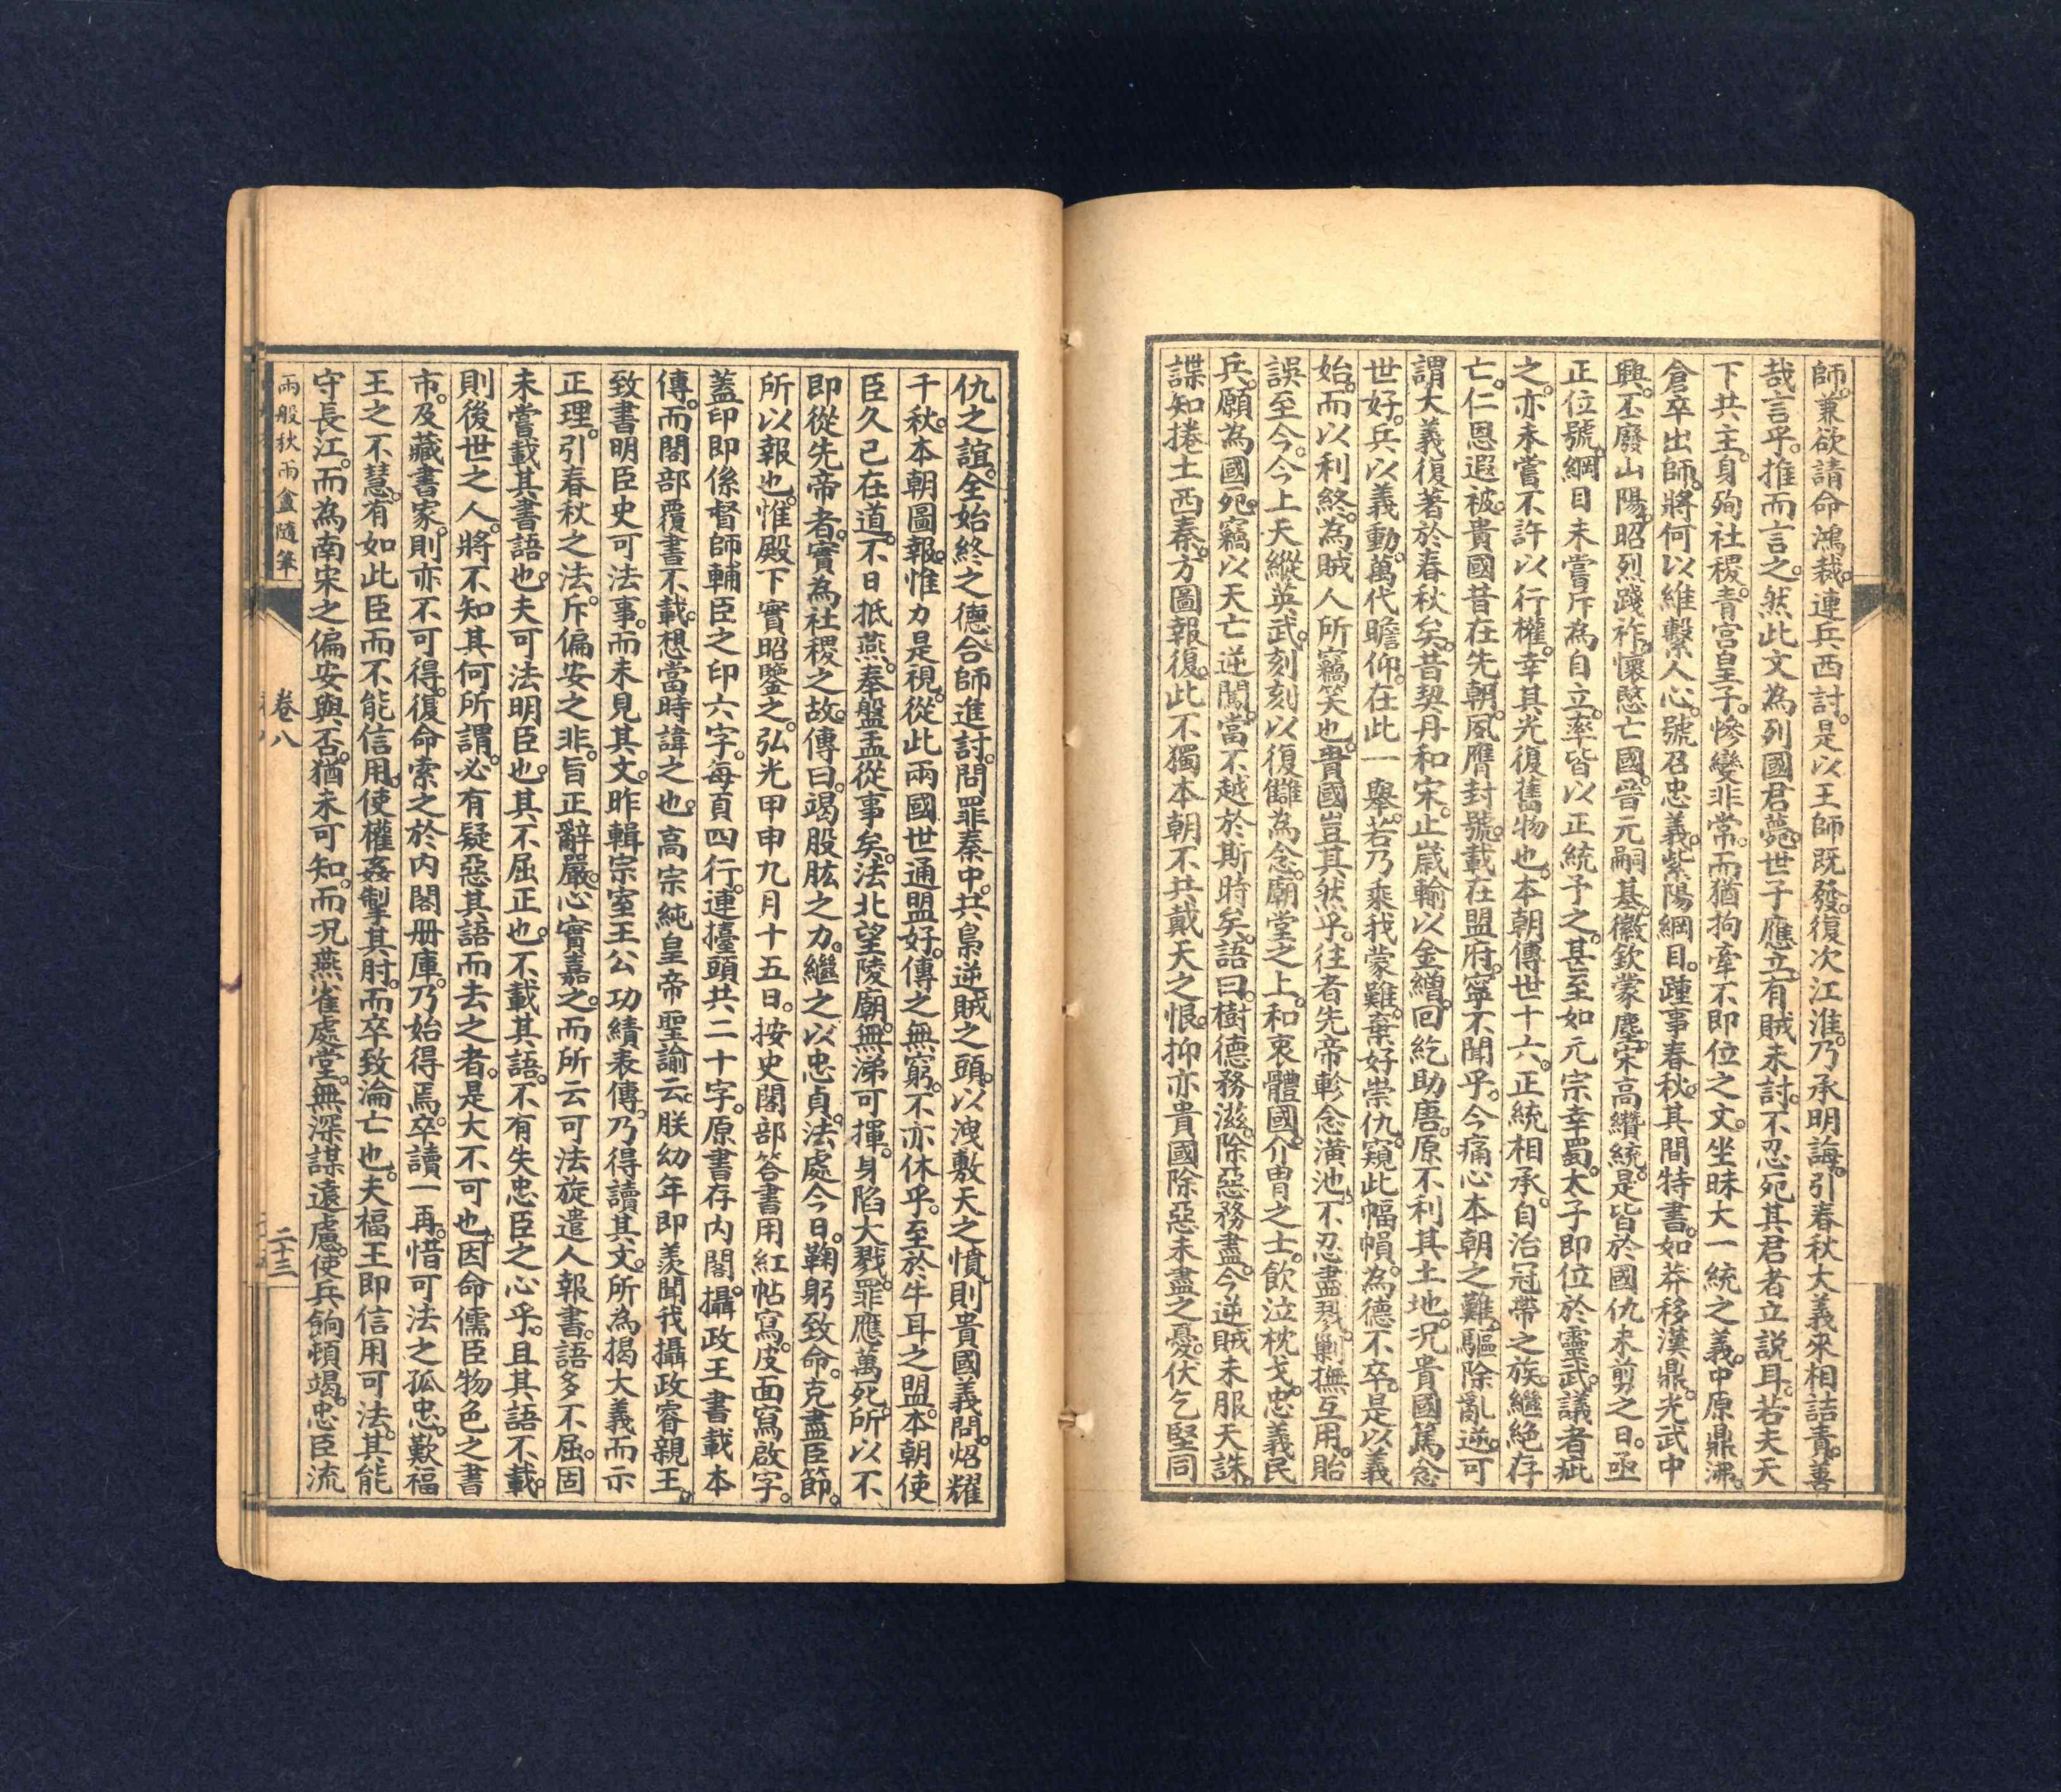 師。兼欲請命鴻裁。連兵西討。是以王師既發。復次江淮。乃承明誨。引春秋大義來相詰責。善
哉言乎。推而言之。然此文為列國君薨。世子應立。有賊未討。不忍死其君者立説耳。若夫天
下共主。身殉社稷。青宮皇子。慘變非常。而猶拘牽不即位之文。坐昧大一統之義。中原鼎沸。
倉卒出師。將何以維繫人心。號召忠義。紫陽綱目。踵事春秋。其間特書。如莽移漢鼎。光武中
興。丕廢山陽。昭烈踐祚。懷愍亡國。晉元嗣基。徽欽蒙塵。宋高纘統。是皆於國仇未剪之日。亟
正位號。綱目未嘗斥為自立。率皆以正統予之。甚至如元宗幸蜀。太子即位於靈武。議者疵
之。亦未嘗不許以行權。幸其光復舊物也。本朝傳世十六。正統相承。自治冠帶之族。繼絶存
亡。仁恩遐被。貴國昔在先朝。夙膺封號。載在盟府。寧不聞乎。今痛心本朝之難。驅除亂逆。可
謂大義復著於春秋矣。昔契丹和宋。止歲輸以金繒。回紇助唐。原不利其土地。況貴國篤念
世好。兵以義動。萬代瞻仰。在此一舉。若乃乘我蒙難。棄好崇仇。窺此幅幀。為德不卒。是以義
始。而以利終。為賊人所竊笑也。貴國豈其然乎。往者先帝軫念潢池。不忍盡戮。勦撫互用。貽
誤至今。今上天縱英武。刻刻以復讎為念。廟堂之上。和衷體國。介胄之士。飲泣枕戈。忠義民
兵。願為國死。竊以天亡逆闖。當不越於斯時矣。語曰。樹德務滋。除惡務盡。今逆賊未服天誅。
諜知捲土西秦。方圖報復。此不獨本朝不共戴天之恨。抑亦貴國除惡未盡之憂。伏乞堅同
仇之誼。全始終之德。合師進討。問罪秦中。共梟逆賊之頭。以洩敷天之憤。則貴國義問。炤耀
千秋。本朝圖報。惟力是視。從此兩國世通盟好。傳之無窮。不亦休乎。至於牛耳之盟。本朝使
臣久己在道。不日抵燕。奉盤盂從事矣。法北望陵廟。無涕可揮。身陷大戮。罪應萬死。所以不
即從先帝者。實為社稷之故。傳曰。竭股肱之力。繼之以忠貞。法處今日。鞠躬致命。克盡臣節。
所以報也。惟殿下實昭鑒之。弘光甲申九月十五日。按史閣部答書用紅帖寫。皮面寫啟字。
蓋印即係督師輔臣之印六字。每頁四行。連擡頭共二十字。原書存内閣。攝政王書載本
傳。而閣部覆書不載。想當時諱之也。高宗純皇帝聖諭云。朕幼年即羨聞我攝政睿親王。
致書明臣史可法事。而未見其文。昨輯宗室王公功績表傳。乃得讀其文。所為揭大義而示
正理。引春秋之法。斥偏安之非。旨正辭嚴。心實嘉之。而所云可法旋遣人報書。語多不屈。固
未嘗載其書語也。夫可法明臣也。其不屈正也。不載其語。不有失忠臣之心乎。且其語不載。
則後世之人。將不知其何所謂。必有疑惡其語而去之者。是大不可也。因命儒臣物色之書
市。及藏書家。則亦不可得。復命索之於内閣册庫。乃始得焉。卒讀一再。惜可法之孤忠。歎福
王之不慧。有如此臣而不能信用。使權姦掣其肘。而卒致淪亡也。夫福王即信用可法。其能
守長江。而為南宋之偏安與否。猶未可知。而况燕雀處堂。無深謀遠慮。使兵餉頓竭。忠臣流
兩般秋雨盦隨筆 卷八 二十三